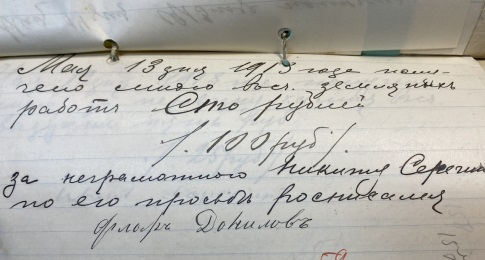 Мая 13 дня 1913 года полу-
чено мною вос. земляныхъ
работъ Сто рублей
/. 100 руб /.
за неграмотного Никитя Серегин
по его просьбѣ росписался
Флоръ Данилов